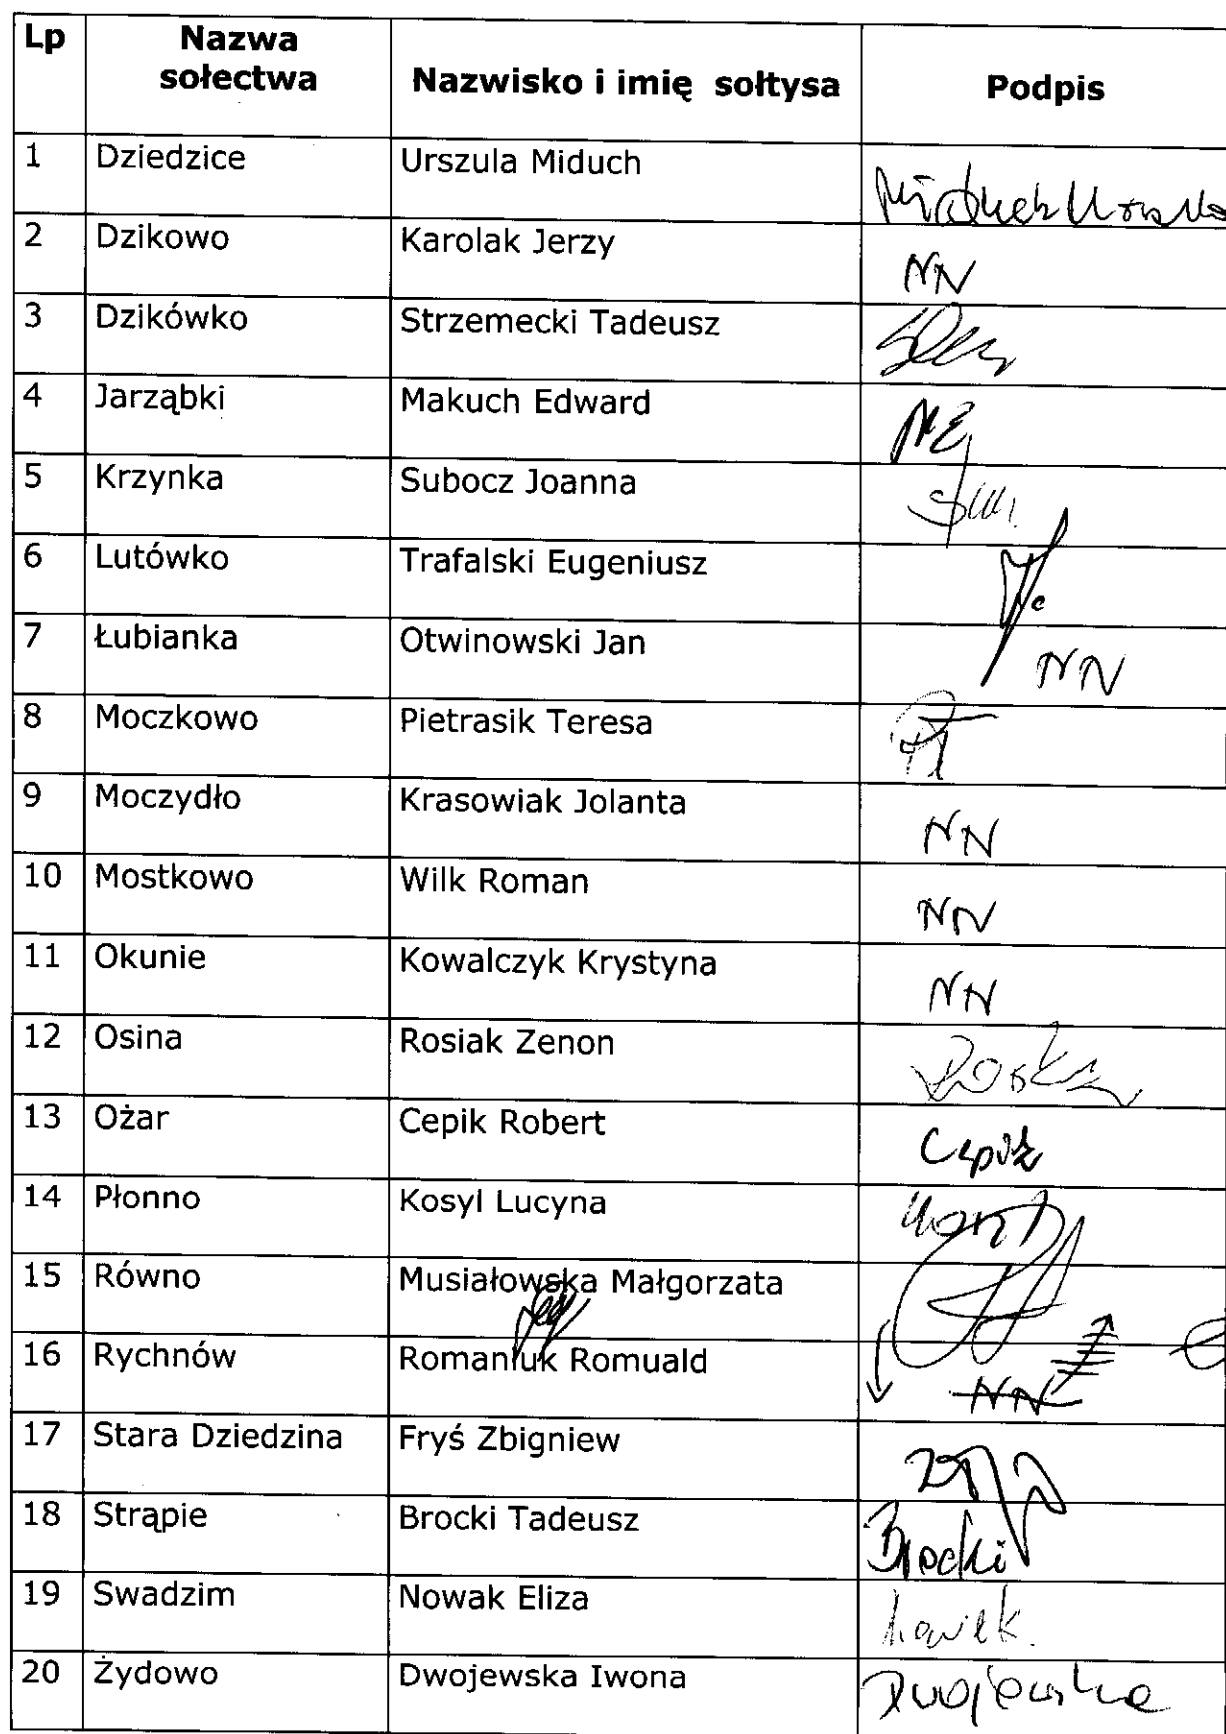 Lp Nazwa sołectwa Nazwisko i imię sołtysa Podpis
1 Dziedzice Urszula Miduch Miduch
2 Dzikowo Karolak Jerzy NN
3 Dzikówko Strzemecki Tadeusz
4 Jarząbki Makuch Edward ME
5 Krzynka Subocz Joanna
6 Lutówko Trafalski Eugeniusz
7 Łubianka Otwinowski Jan NN
8 Moczkowo Pietrasik Teresa
9 Moczydło Krasowiak Jolanta NN
10 Mostkowo Wilk Roman NN
11 Okunie Kowalczyk Krystyna NN
12 Osina Rosiak Zenon
13 Ożar Cepik Robert Cepik
14 Płonno Kosyl Lucyna
15 Równo Musiałowska Małgorzata
16 Rychnów Romaniuk Romuald NN
17 Stara Dziedzina Fryś Zbigniew
18 Strąpie Brocki Tadeusz Brocki
19 Swadzim Nowak Eliza
20 Żydowo Dwojewska Iwona Dwojewska